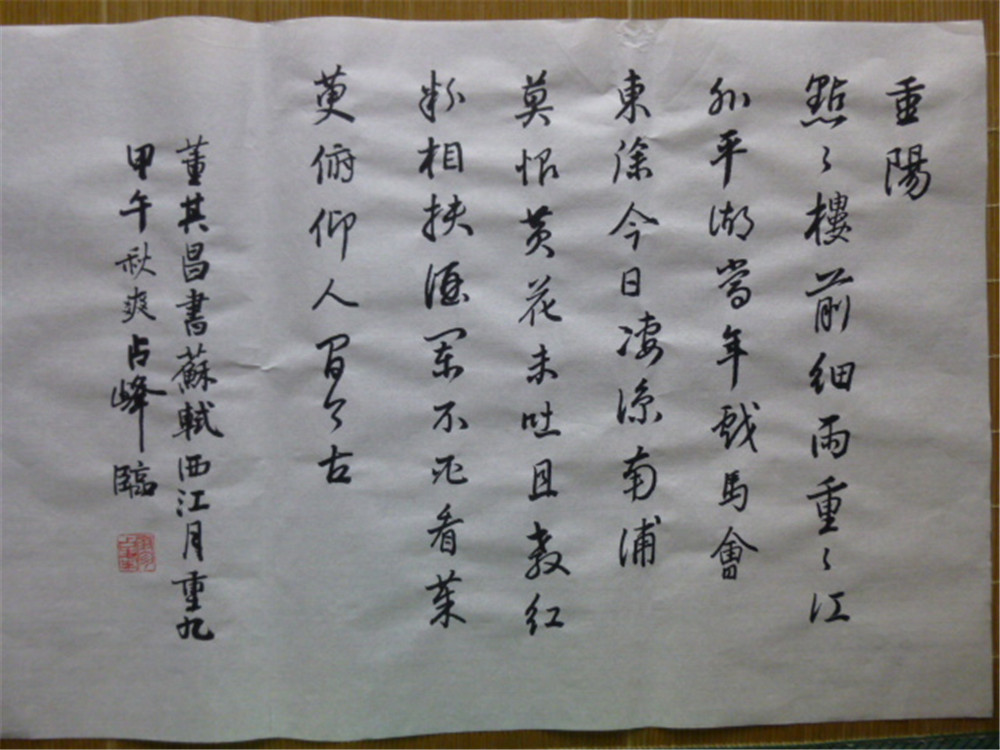 重陽
點〻樓前細雨重〻江
外平湖當年戲馬會
東徐今日凄涼南浦
莫恨黃花未吐且教紅
粉相扶酒闌不必看茱
萸俯仰人間今古
董其昌書蘇軾西江月重九
甲午秋爽占峰臨